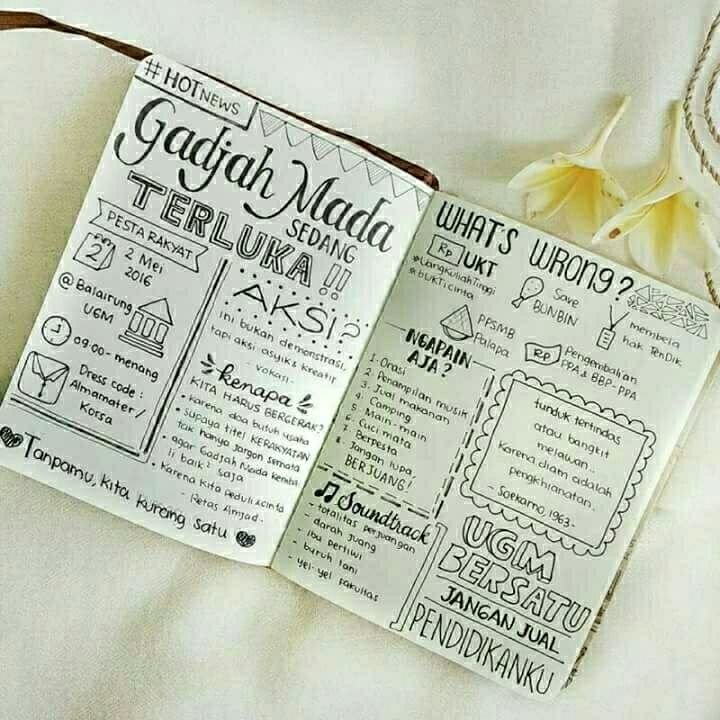 #HOTNEWS
Gadjah Mada
SEDANG
TERLUKA!!
PESTA RAKYAT
2
2 Mei
2016
@ Balairung
UGM
09.00 - menang
Dress code :
Almamater /
Korsa
AKSI?
ini bukan demonstrasi,
tapi aksi asyik & kreatif
vokasi -
kenapa
KITA HARUS BERGERAK?
• karena doa butuh usaha
• supaya titel KERAKYATAN
tak hanya jargon semata
• agar Gadjah Mada kembali
baik² saja
• karena kita peduli & cinta
- Retas Amjad -
Tanpamu, kita kurang satu
WHAT'S WRONG?
Rp UKT
#UangKuliahTinggi
#bUKTicinta
Save
BUNBIN
membela
hak TenDik
PPSMB
Palapa
Rp
Pengembalian
PPA & BBP-PPA
NGAPAIN
AJA?
1. Orasi
2. Penampilan musik
3. Jual makanan
4. Camping
5. Main-main
6. Cuci mata
7. Berpesta
8. Jangan lupa,
BERJUANG!
tunduk tertindas
atau bangkit
melawan..
karena diam adalah
pengkhianatan.
- Soekarno, 1963 -
Soundtrack
- totalitas perjuangan
- darah juang
- ibu pertiwi
- buruh tani
- yel-yel fakultas
UGM
BERSATU
JANGAN JUAL
PENDIDIKANKU